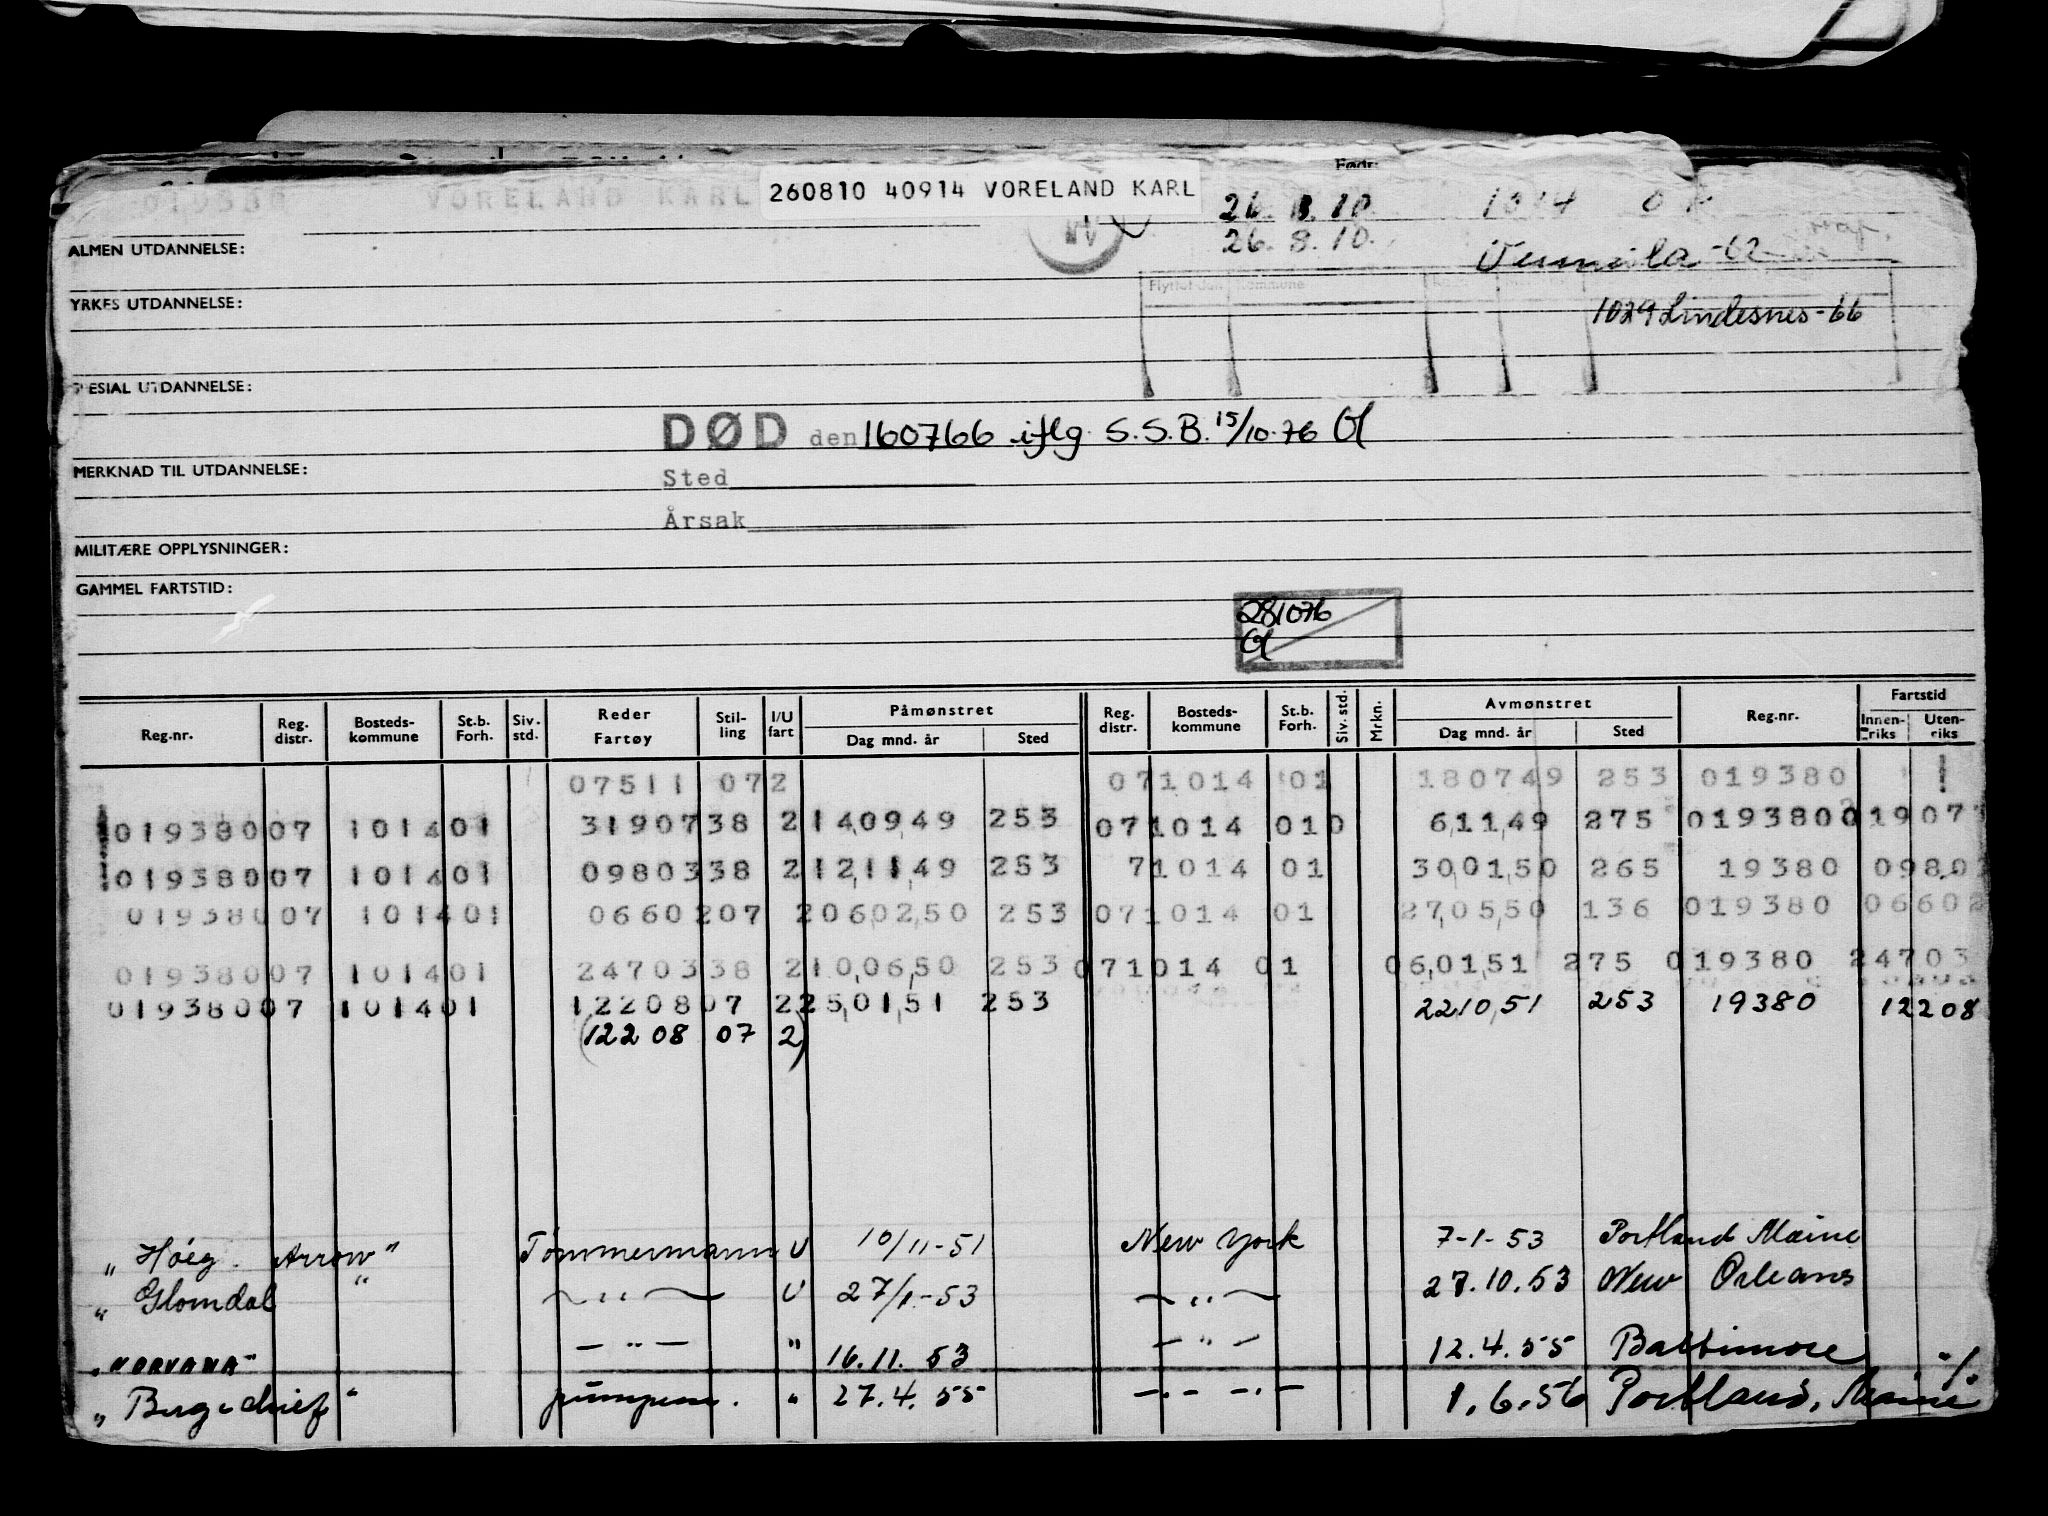 Født:
010380 VORELAND KARL 260810 40914 VORELAND KARL 26. 8. 10. 1014
26. 8. 10.
ALMEN UTDANNELSE: Vennesla -62
Flyttet Kommune
YRKES UTDANNELSE: 1029 Lindesnes -66
SPESIAL UTDANNELSE:
DØD den 160766 iflg S.S.B. 15/10-76 Gl
MERKNAD TIL UTDANNELSE: Sted
Årsak
MILITÆRE OPPLYSNINGER:
GAMMEL FARTSTID:
281076
Gl
Reg.nr. Reg. distr. Bosteds- kommune St.b. Forh. Siv. std. Reder Fartøy Stil- ling I/U fart Påmønstret Dag mnd. år Sted Reg. distr. Bosteds- kommune St.b. Forh. Siv. std. Mrkn. Avmønstret Dag mnd. år Sted Reg.nr. Fartstid Innen- riks Uten- riks
07511 072 071014 01 180749 253 019380
01938007 101401 3190738 2 140949 253 071014 010 61149 275 019380 01907
01938007 101401 0980338 2 121149 253 71014 01 300150 265 19380 0980
01938007 101401 0660207 2 060250 253 071014 01 270550 136 019380 06602
01938007 101401 2470338 2 100650 253 071014 01 060151 275 019380 24703
01938007 101401 1220807 2 250151 253 221051 253 19380 12208
(12208 07 2)
„Höeg Arrow" Tømmermann U 10/11-51 New York 7-1-53 Portland Maine
„Glomdal" — " — U 27/1-53 — " — 27.10.53 New Orleans
„NORVANA" — " — " 16.11.53 — " — 12.4.55 Baltimore ./.
„Bergechief" pumpem. " 27.4.55 — " — " — 1.6.56 Portland, Maine